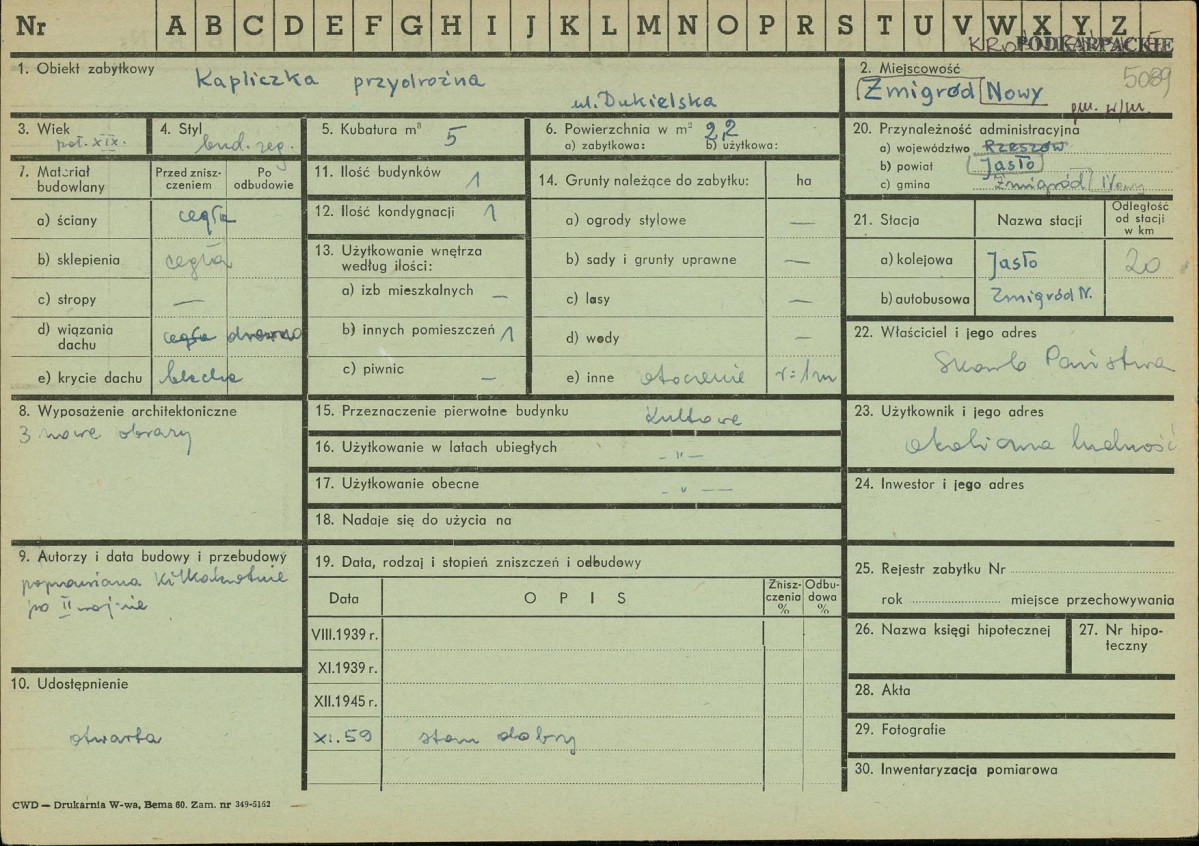 Nr A B C D E F G H I J K L M N O P R S T U V W X Y Z
PODKARPACKIE
1. Obiekt zabytkowy Kapliczka przydrożna
ul. Dukielska
2. Miejscowość 5089
Żmigród Nowy
gm. w/m.
3. Wiek poł. XIX.
4. Styl bud. reg.
5. Kubatura m³ 5
6. Powierzchnia w m² 2,2
a) zabytkowa: b) użytkowa:
20. Przynależność administracyjna
a) województwo Rzeszów
b) powiat Jasło
c) gmina Żmigród Nowy
7. Materiał budowlany
Przed zniszczeniem
Po odbudowie
a) ściany cegła
b) sklepienia cegła
c) stropy —
d) wiązania dachu cegła drewno
e) krycie dachu blacha
11. Ilość budynków 1
12. Ilość kondygnacji 1
13. Użytkowanie wnętrza
według ilości:
a) izb mieszkalnych —
b) innych pomieszczeń 1
c) piwnic —
14. Grunty należące do zabytku: ha
a) ogrody stylowe —
b) sady i grunty uprawne —
c) lasy —
d) wody —
e) inne otoczenie r=1m
21. Stacja Nazwa stacji Odległość od stacji w km
a) kolejowa Jasło 20
b) autobusowa Żmigród N.
22. Właściciel i jego adres
Skarb Państwa
8. Wyposażenie architektoniczne
3 nowe obrazy
15. Przeznaczenie pierwotne budynku kultowe
16. Użytkowanie w latach ubiegłych - " —
17. Użytkowanie obecne - " —
18. Nadaje się do użycia na
23. Użytkownik i jego adres
okoliczna ludność
24. Inwestor i jego adres
9. Autorzy i data budowy i przebudowy
poprawiana kilkakrotnie
po II wojnie
19. Data, rodzaj i stopień zniszczeń i odbudowy
Data OPIS Zniszczenia % Odbudowa %
VIII.1939 r.
XI.1939 r.
XII.1945 r.
XI.59 stan dobry
25. Rejestr zabytku Nr
rok miejsce przechowywania
26. Nazwa księgi hipotecznej
27. Nr hipoteczny
10. Udostępnienie
otwarta
28. Akta
29. Fotografie
30. Inwentaryzacja pomiarowa
CWD — Drukarnia W-wa, Bema 60. Zam. nr 349-5162